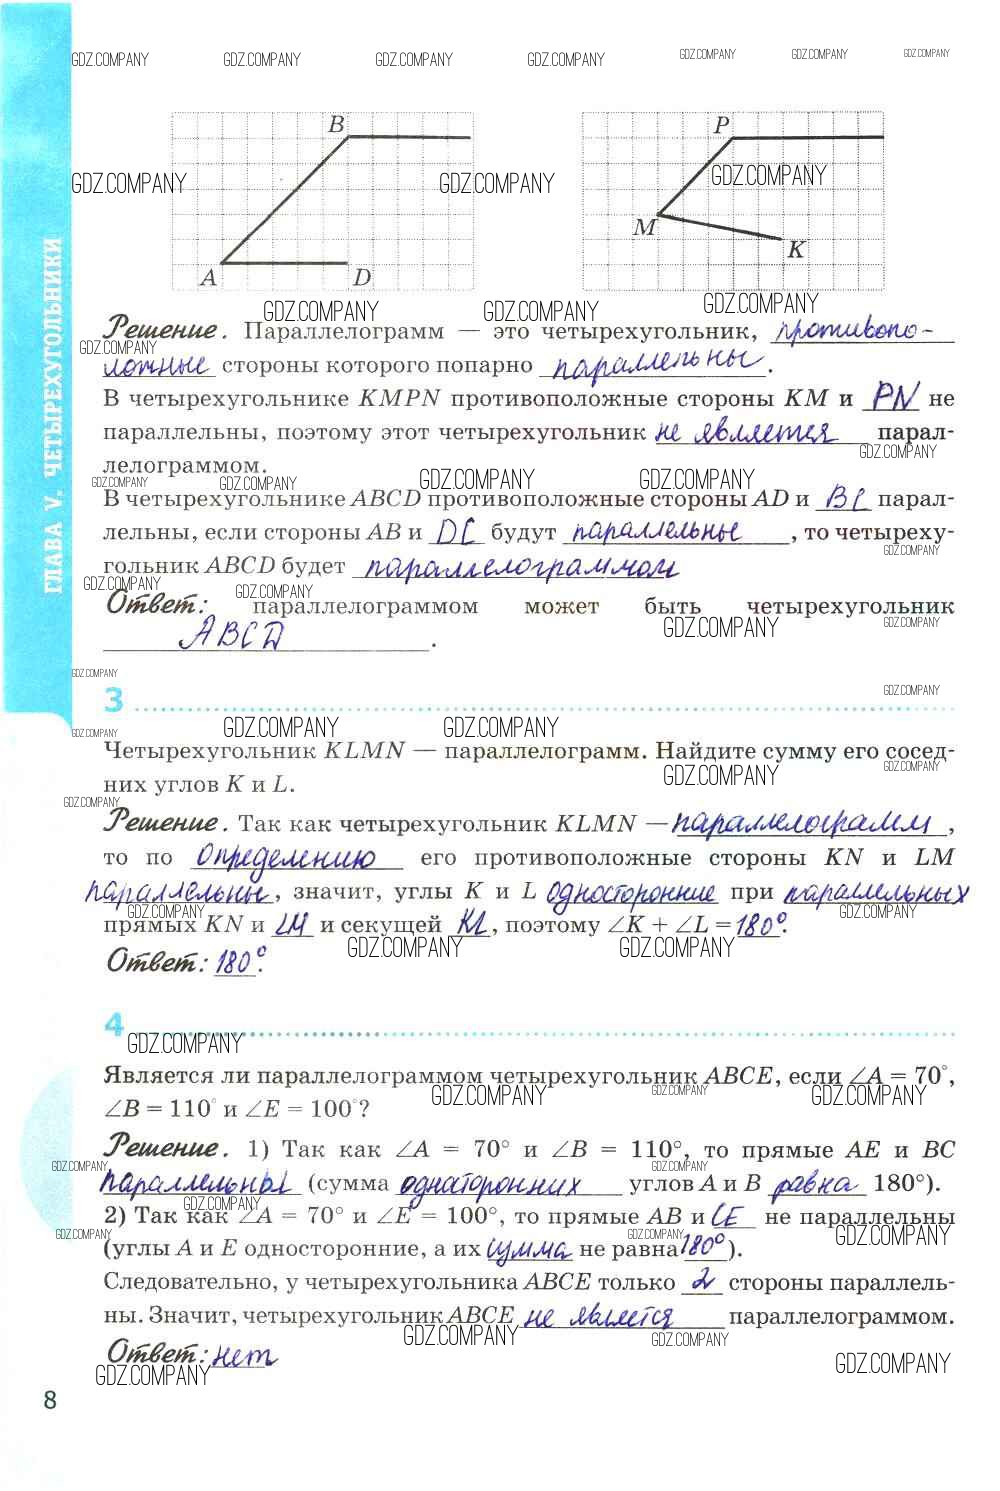 GDZ.COMPANY GDZ.COMPANY GDZ.COMPANY GDZ.COMPANY GDZ.COMPANY GDZ.COMPANY GDZ.COMPANY
B P
GDZ.COMPANY GDZ.COMPANY GDZ.COMPANY
M K
A D
GDZ.COMPANY GDZ.COMPANY GDZ.COMPANY
ГЛАВА V. ЧЕТЫРЕХУГОЛЬНИКИ
Решение. Параллелограмм — это четырехугольник, противопо-
GDZ.COMPANY
ложные стороны которого попарно параллельны.
В четырехугольнике KMPN противоположные стороны KM и PN не
параллельны, поэтому этот четырехугольник не является парал-
GDZ.COMPANY
лелограммом.
GDZ.COMPANY GDZ.COMPANY GDZ.COMPANY GDZ.COMPANY
В четырехугольнике ABCD противоположные стороны AD и BC парал-
лельны, если стороны AB и DC будут параллельны, то четыреху-
GDZ.COMPANY
гольник ABCD будет параллелограммом
GDZ.COMPANY GDZ.COMPANY
Ответ: параллелограммом может быть четырехугольник
GDZ.COMPANY GDZ.COMPANY
ABCD.
GDZ.COMPANY
3
GDZ.COMPANY
GDZ.COMPANY GDZ.COMPANY GDZ.COMPANY
Четырехугольник KLMN — параллелограмм. Найдите сумму его сосед-
GDZ.COMPANY GDZ.COMPANY
них углов K и L.
GDZ.COMPANY
Решение. Так как четырехугольник KLMN — параллелограмм,
то по определению его противоположные стороны KN и LM
параллельны, значит, углы K и L односторонние при параллельных
GDZ.COMPANY GDZ.COMPANY
прямых KN и LM и секущей KL, поэтому ∠K + ∠L = 180°.
GDZ.COMPANY GDZ.COMPANY
Ответ: 180°.
4
GDZ.COMPANY
Является ли параллелограммом четырехугольник ABCE, если ∠A = 70°,
GDZ.COMPANY GDZ.COMPANY GDZ.COMPANY
∠B = 110° и ∠E = 100°?
Решение. 1) Так как ∠A = 70° и ∠B = 110°, то прямые AE и BC
GDZ.COMPANY GDZ.COMPANY
параллельны (сумма односторонних углов A и B равна 180°).
GDZ.COMPANY
2) Так как ∠A = 70° и ∠E = 100°, то прямые AB и CE не параллельны
GDZ.COMPANY GDZ.COMPANY GDZ.COMPANY
(углы A и E односторонние, а их сумма не равна 180°).
Следовательно, у четырехугольника ABCE только 2 стороны параллель-
ны. Значит, четырехугольник ABCE не является параллелограммом.
GDZ.COMPANY GDZ.COMPANY
Ответ: нет
GDZ.COMPANY GDZ.COMPANY
8